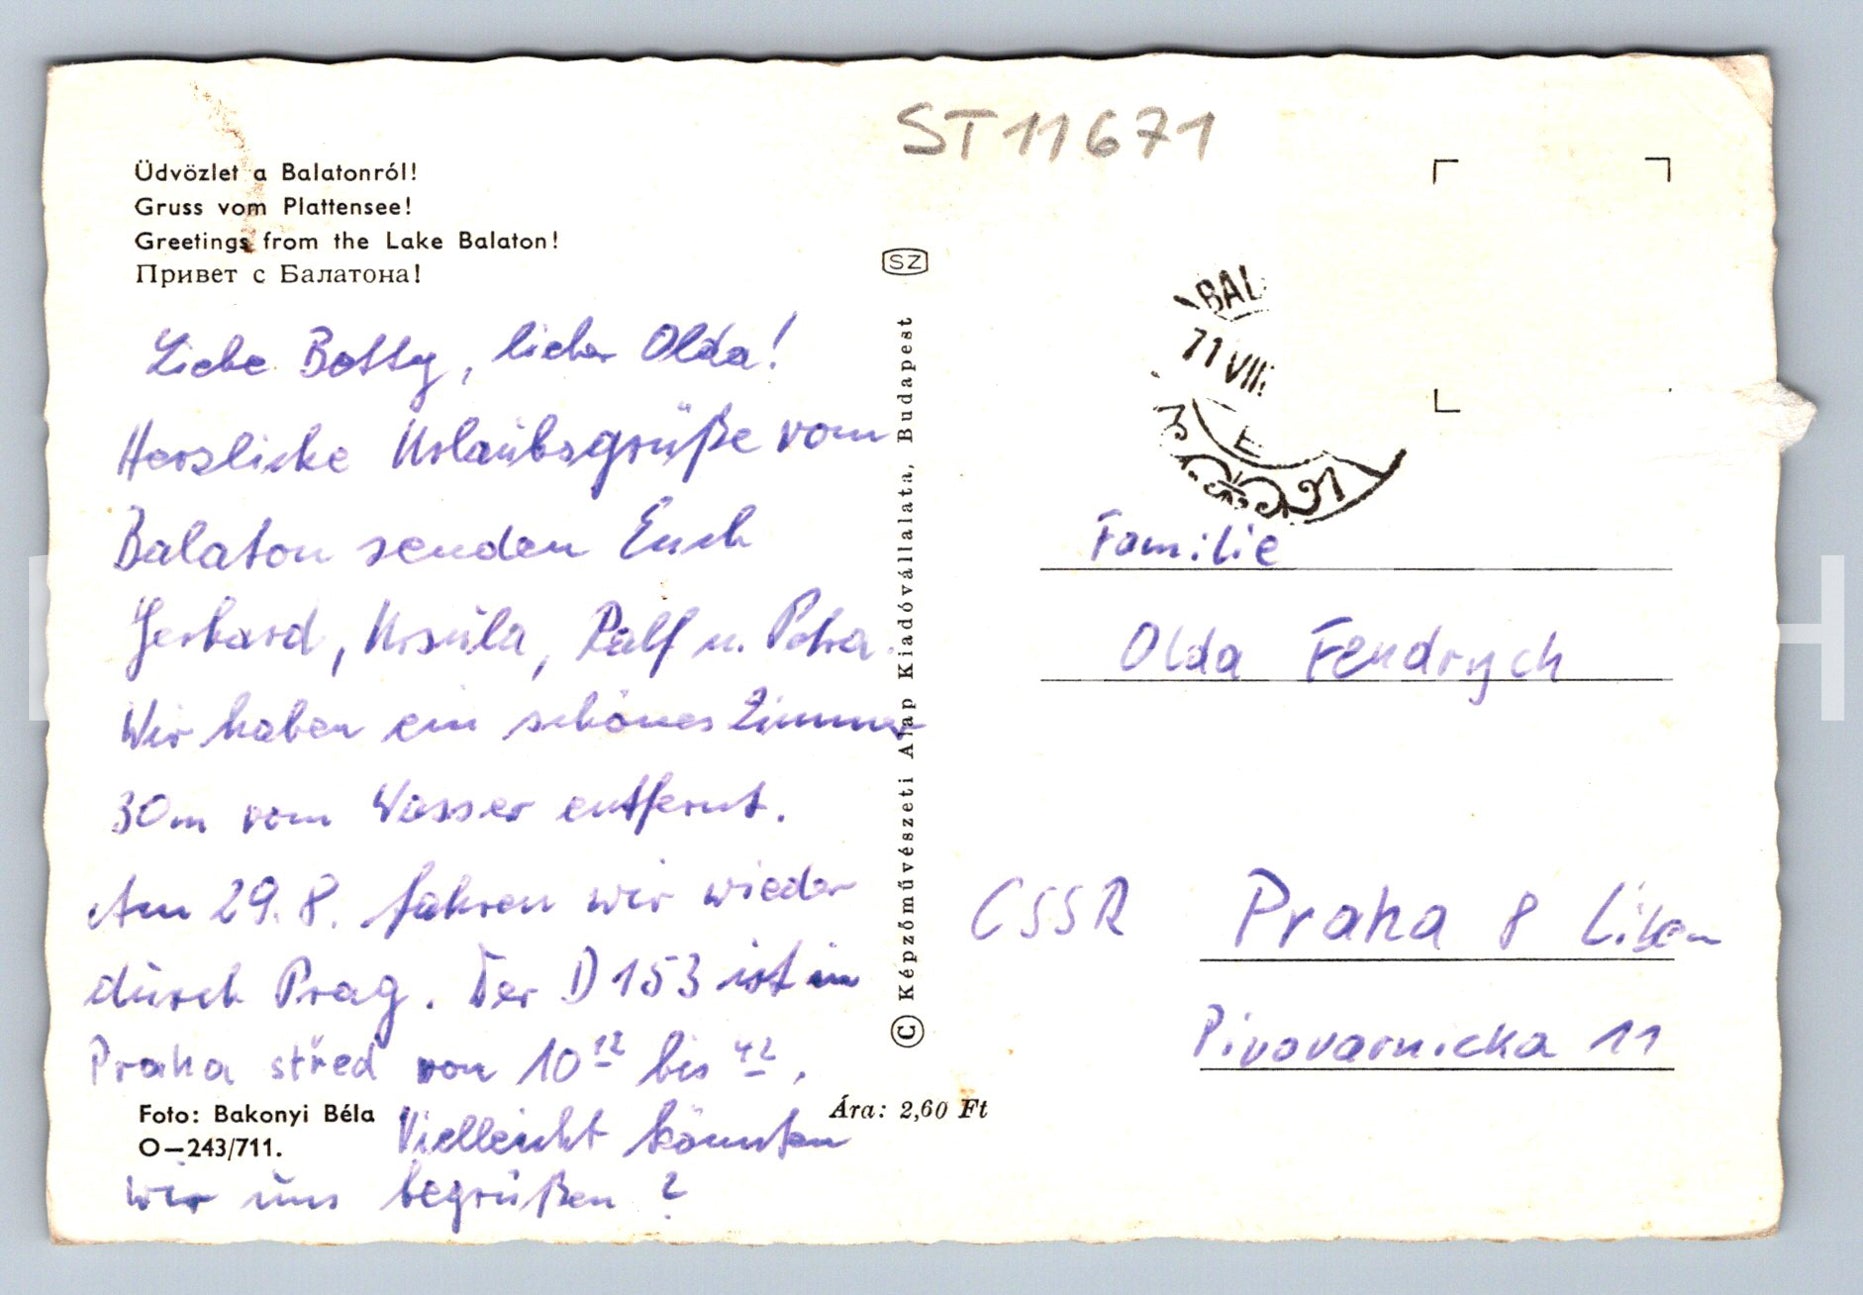 ST 11671
Üdvözlet a Balatonról!
Gruss vom Plattensee!
Greetings from the Lake Balaton!
Привет с Балатона!
Liebe Betty, lieber Olda!
Herzliche Urlaubsgrüße vom
Balaton senden Euch
Gerhard, Ursula, Ralf u. Petra.
Wir haben ein schönes Zimmer
30m vom Wasser entfernt.
Am 29.8. fahren wir wieder
durch Prag. Der D 153 ist in
Praha střed von 10 12 bis 42.
Foto: Bakonyi Béla
O—243/711.
Vielleicht könnten
wir uns begrüßen?
SZ
© Képzőművészeti Alap Kiadóvállalata, Budapest
Ára: 2,60 Ft
BAL
71 VIII
Familie
Olda Fendrych
CSSR Praha 8 Liben
Pivovarnicka 11